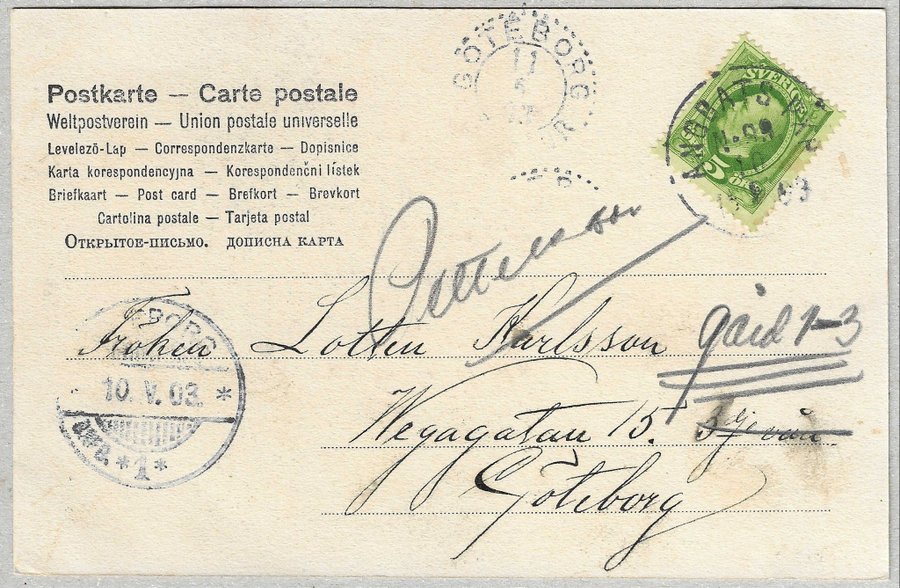 Postkarte — Carte postale
Weltpostverein — Union postale universelle
Levelezō-Lap — Correspondenzkarte — Dopisnice
Karta korespondencyjna — Korespondenčni lístek
Briefkaart — Post card — Brefkort — Brevkort
Cartolina postale — Tarjeta postal
Открытое-письмо. дописна карта
GÖTEBORG
11
5
SVERIGE
5
Pettersson
Fröken Lotten Karlsson
gård 1-3
10. V. 03. *
*1*
Wegagatan 15.
Göteborg